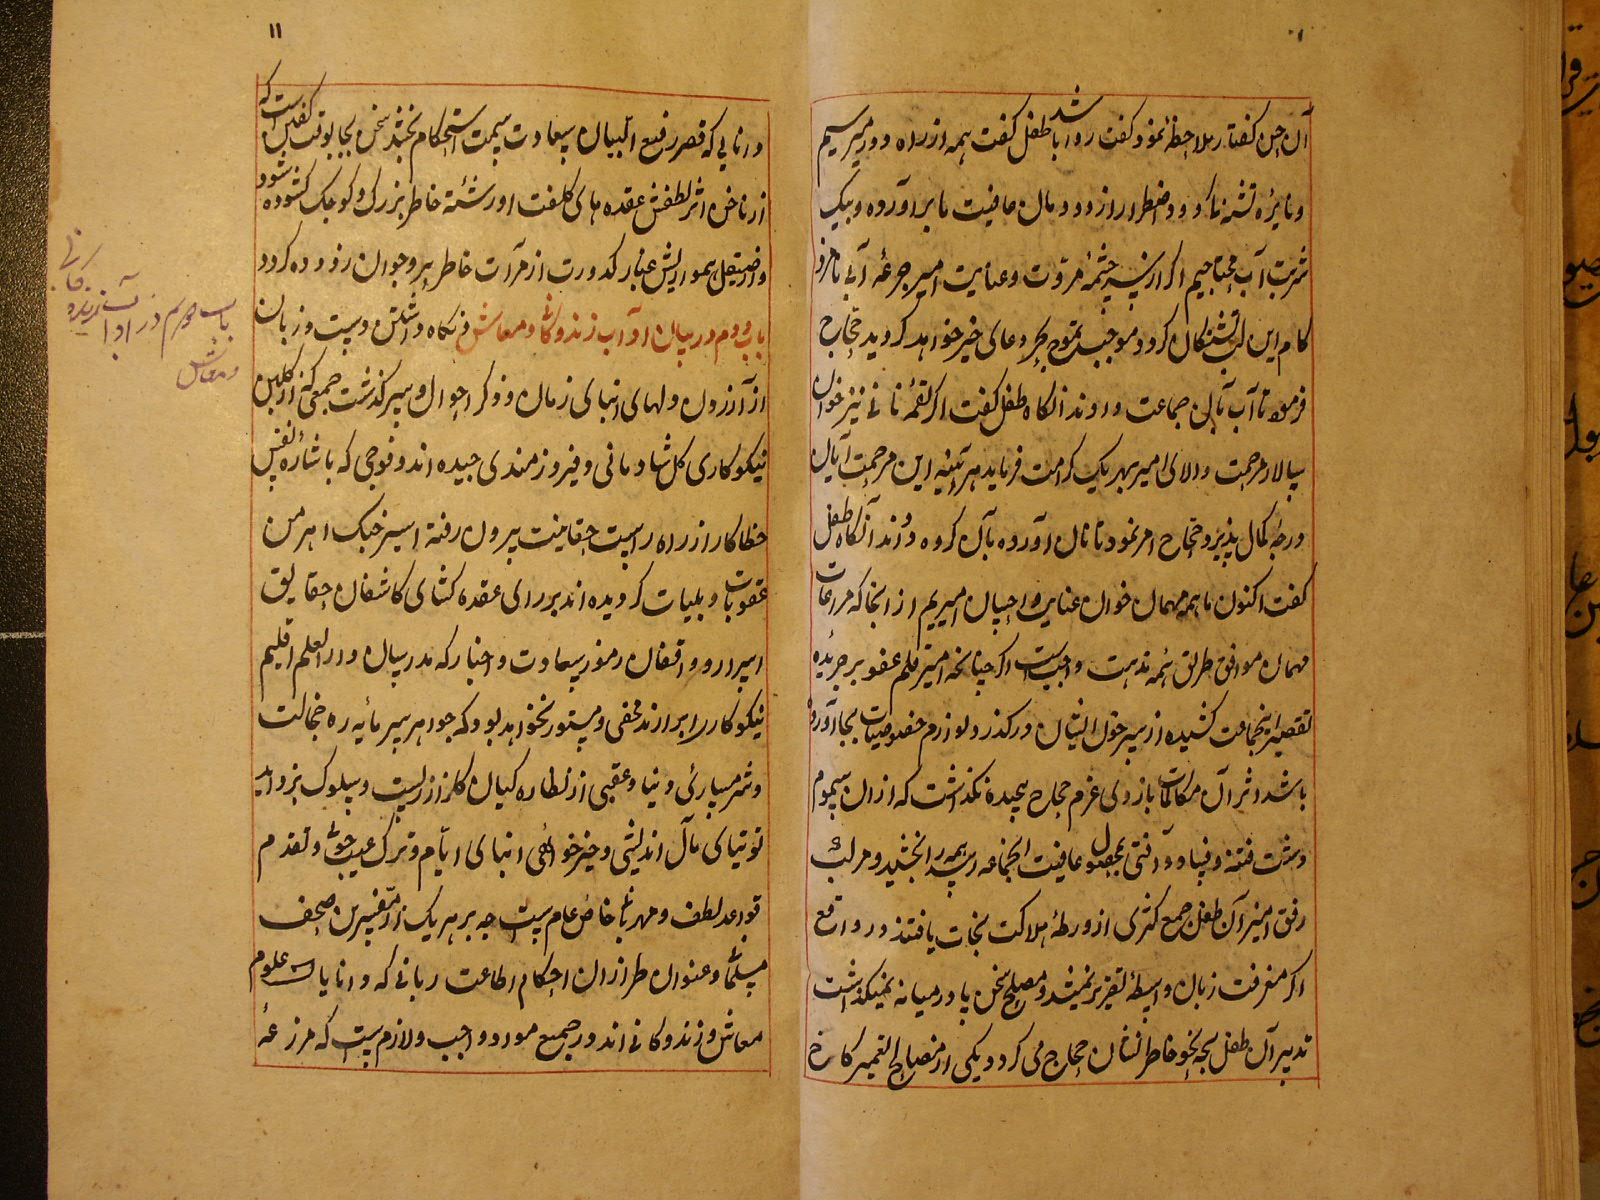 آن حین گفتار ملاحظه نمود گفت روا باشد طفل گفت همه از راه دور میرسیم
و نایره تشنه ناکو دود اضطرار از دودمان عافیت ما برآورده و بیک
شربت آب محتاجیم اگر از سرچشمهٔ مروت و عنایت امیر جرعهٔ آبی نامزد
کام این لب تشنگان گردد موجب تموج بحر دعای خیر خواهد گردید حجاج
فرمود تا آب بآن جماعت دادند آنگاه طفل گفت اگر لقمهٔ نانی نیز خوان
سالار مرحمت والای امیر بهر یک کرامت فرماید هر آینه این مرحمت آیان
درجهٔ کمال پذیرد حجاج امر نمود تا نان آورده بآن گروه دادند آنگاه طفل
گفت اکنون ما همه مهمان خوان عنایت و احسان امیریم از آنجا که مراعات
مهمان موافق طریق همه مذهبت واجب است اگر چنانچه امیر قلم عفو بر جریده
تقصیر اینجماعت کشیده از سر خون ایشان درگذرد لوازم خصوصیات بجا آورده
باشد اثر آن مکالمات بازوی عزم حجاج پیچیده نگذاشت که از آن سموم
دشت فتنه و فساد آفتی بمحصول عافیت آنجماعه رسد همه را بخشید و مراتب
رفق آمیز آن طفل جمع کثری از ورطهٔ هلاکت نجات یافتند در واقع
اگر معرفت زبان واسطهٔ تقریر نمیشد و مصلح سخن پا در میانه نمیگذاشت
تدبیر آن طفل بچه نحو خاطرنشان حجاج می کرد و یکی از مصالح تعمیر کاخ
۱۱
دانایی که قصر رفیع البیان سعادت سمت استحکام بخشد سخن بجا بوقت گفتن است که
از ناخن اثر لطفش عقده های کلفت از رشتهٔ خاطر بزرگ و کوچک گشوده شود
و از صیقل همواریش غبار کدورت از مرآت خاطر پیر و جوان زدوده گردد
باب دوم در بیان آداب زندوکانی و معاش و نگاه داشتن دست و زبان
از آزردن دلهای ابنای زمان و ذکر احوال و سرگذشت جمعی که از گلبن
نیکوکاری گل شادمانی و فیروزمندی چیده اند و فوجی که باشاره نفس
خطاکار از راه راست حقانیت بیرون رفته اسیر خبک اهرمن
عقوبات و بلیات گردیده اند بر رای عقده کشای کاشفان حقایق
اسرار و واقفان رموز سعادت و اخبار که مدرسان دار العلم اقلیم
نیکوکار را برازند مخفی و مستور نخواهد بود که جواهر سرمایه ره خجالت
و شرمساری دنیا و عقبی از نظاره کیان کارزار زیست و سلوک بزداید
توتیای مآل اندیشی و خیر خواهی ابنای ایام و ترک عیب جوئی و تقدم
قواعد لطف و مهربانی خاص عام است چه بر هر یک از مفسرین صحف
مسلمانی و عنوان طرازان احکام اطاعت ربانی که دانایان علوم
معاش و زندوکانی اند در جمیع موارد واجب و لازم است که مزرعهٔ
باب دوم در آداب زندوکانی
و معاش